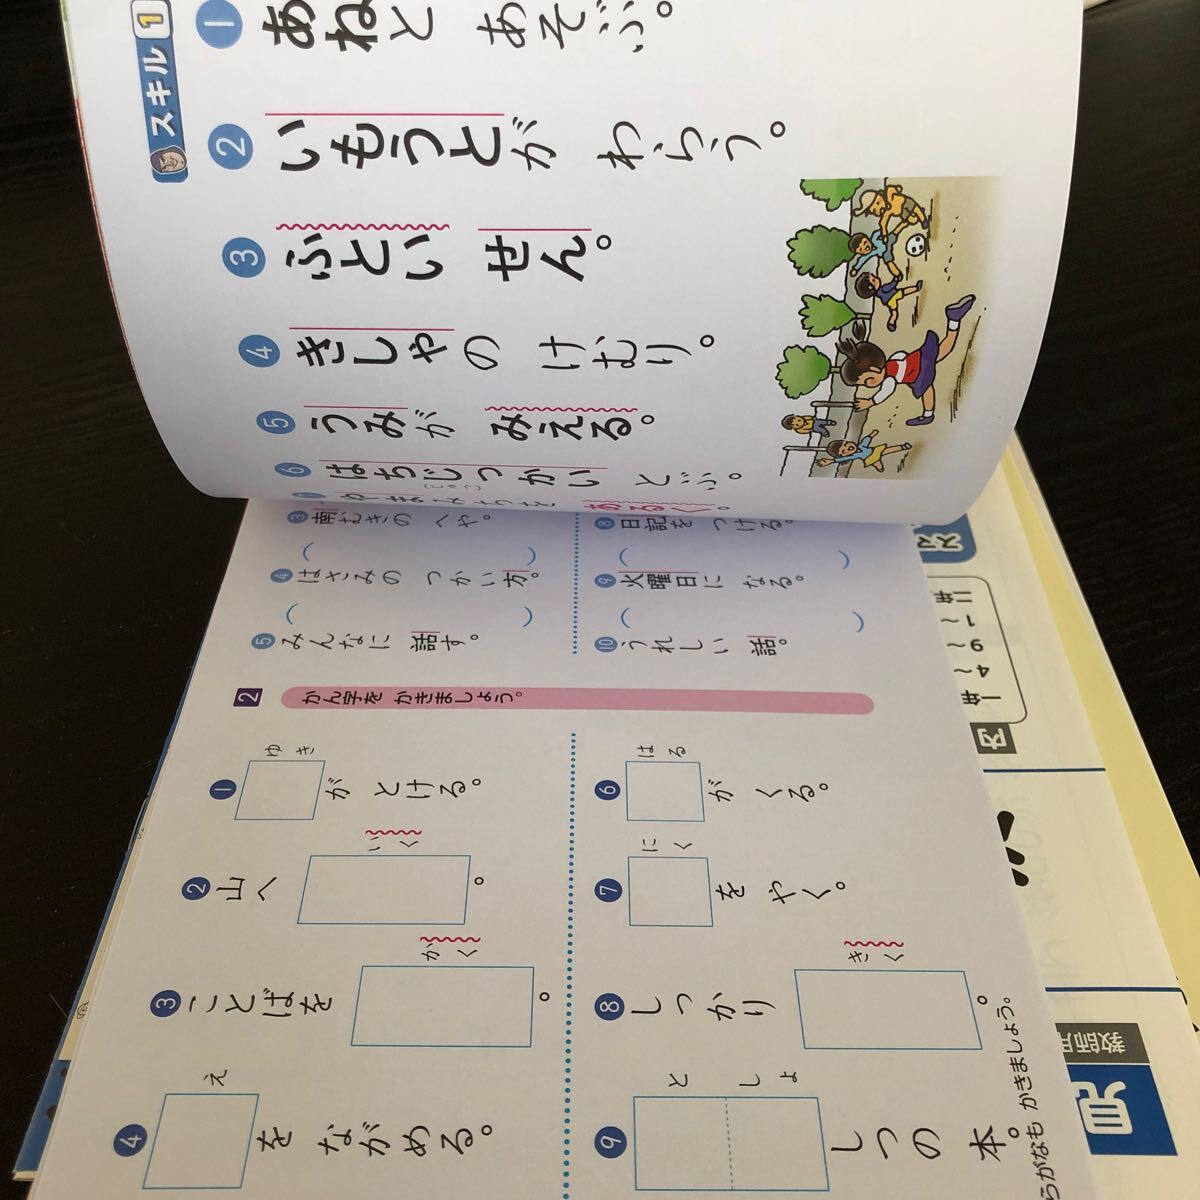 スキル1
1 あねと あそぶ。
2 いもうとが わらう。
3 ふとい せん。
4 きしゃの けむり。
5 うみが みえる。
6 はちじつかい とぶ。
3 南むきの へや。
4 はさみの つかい方。
5 みんなに 話す。
8 日記を つける。
9 火曜日に なる。
10 うれしい 話。
2 かん字を かきましょう。
1 ゆき が とける。
2 山へ いく。
3 ことばを かく。
4 え を ながめる。
6 はる が くる。
7 にく を やく。
8 しっかり きく。
9 としょ しつの 本。
らがなも かきましょう。
教師用